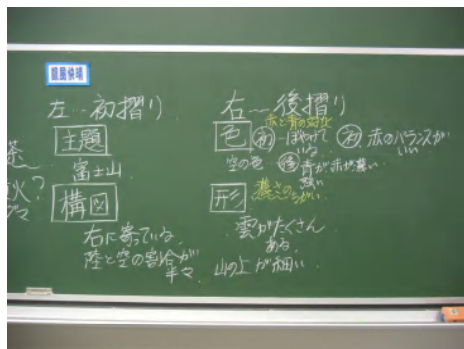 凱風快晴
左…初摺り
主題
富士山
構図
右に寄っている
陸と空の割合が
半々
右…後摺り
赤と青の対比
色
初 ぼやけて
いる
初 赤のバランスが
いい
空の色
後 青が 赤が濃い
濃い
形
濃さのちがい
雲がたくさん
ある
山の上が細い
茶
火?